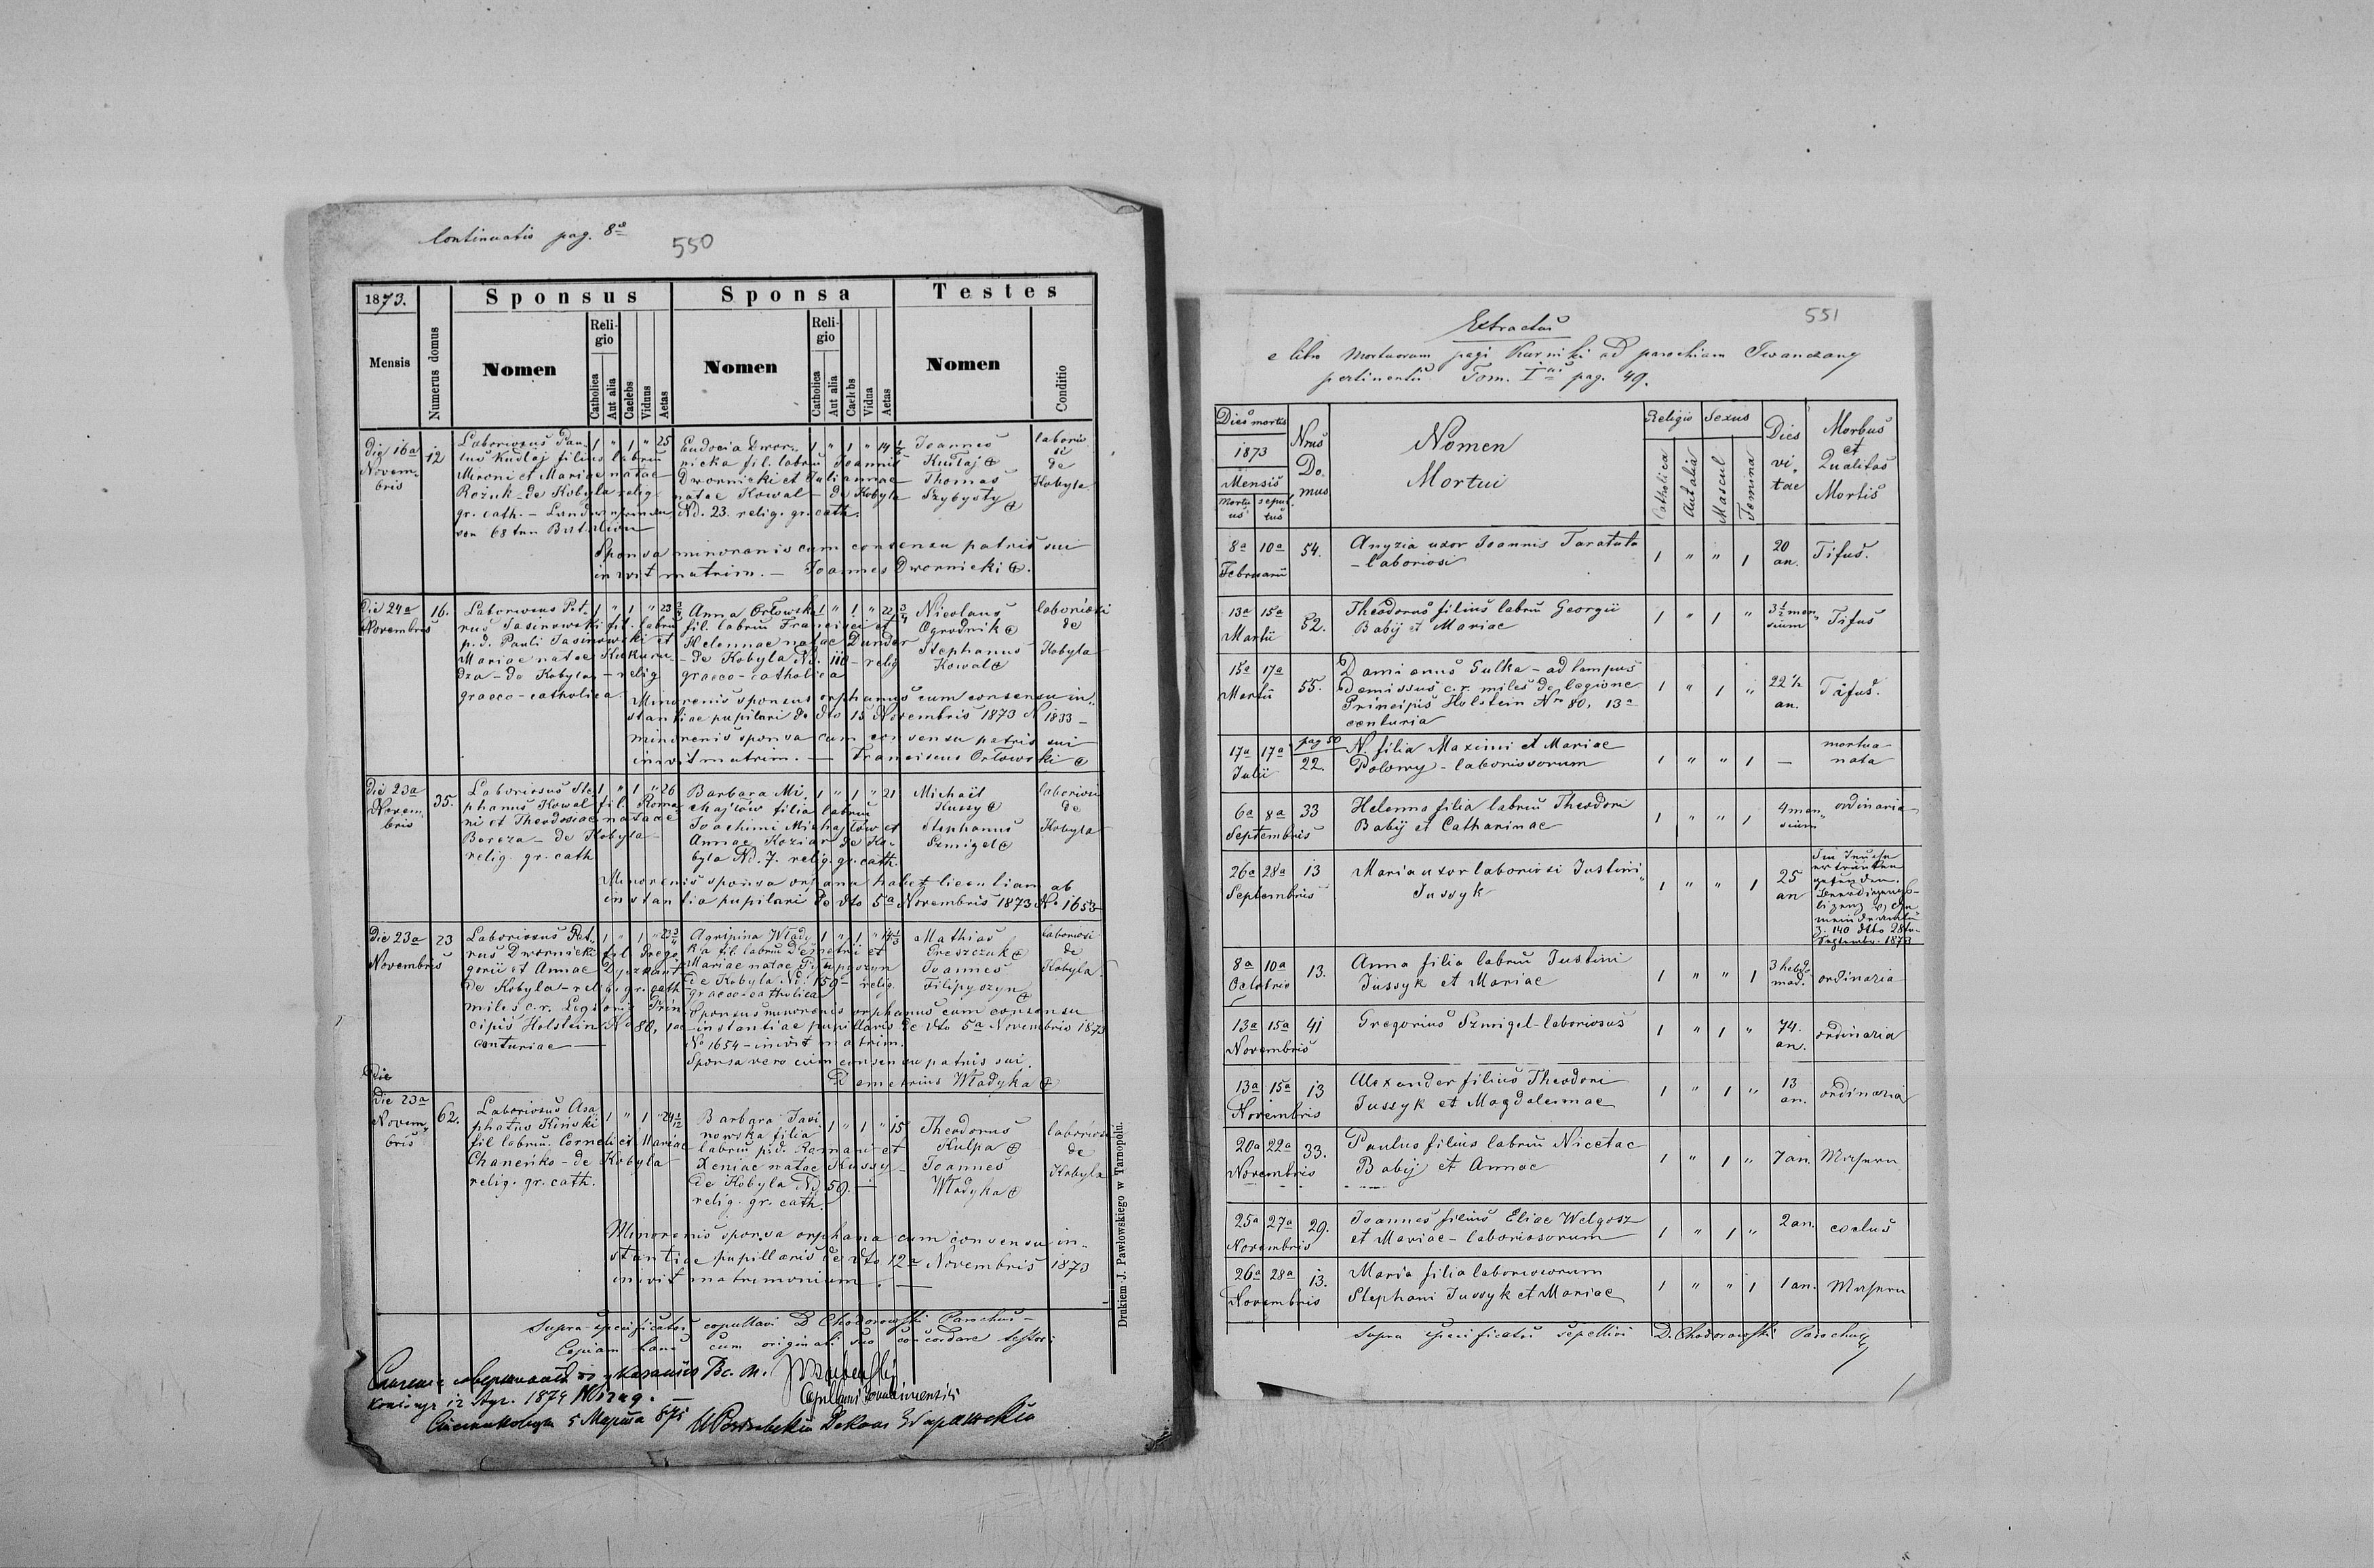 Continuatio pag. 8a
550
1873.
Sponsus
Sponsa
Testes
Mensis
Numerus domus
Nomen
Religio
Catholica
Aut alia
Caelebs
Viduus
Aetas
Nomen
Religio
Catholica
Aut alia
Caelebs
Vidua
Aetas
Nomen
Conditio
Die 16a
Novem-
bris
12
Laboriosus Pau-
lus Kuďłaj filius labrum
Mironi et Mariae natae
Rożuk - de Kobyla relig.
gr. cath. -
von 68ten Bataillon
1 " 1 " 25
Eudocia Dwor-
nicka fil. labrum Joannis
Dwornicki et Juliannae
natae Kowal - de Kobyla
Nd. 23. relig. gr. cath.
1 " 1 " 14
Joannes
Kudłaj
Thomas
Szybysty
laborio
si
de
Kobyla
Sponsa minorenis cum consensu patris sui
inivit matrim. - Joannes Dwornicki.
Die 24a
Novembris
16.
Laboriosus Pet-
rus Jasinowski fil. labrum
p.d. Pauli Jasinowski et
Mariae natae Kukuru-
dza - de Kobyla - relig
graeco-catholica
1 " 1 " 23
Anna Orłowska
fil. labrum Francisci et
Helennae natae Dunder
- de Kobyla Nd. 110 - relig
graeco-catholica
1 " 1 " 22
Nicolaus
Ogrodnik
Stephanus
Kowal
laboriosi
de
Kobyla
Minorenis sponsus orphanus cum consensu in-
stantiae pupilari de dto 15 Novembris 1873 N 1833 -
minorenis sponsa cum consensu patris sui
inivit matrim. - Franciscus Orłowski
Die 23a
Novem.
bris
35.
Laboriosus Ste-
phanus Kowal fil. Roma-
ni et Theodosiae natae
Bereza - de Kobyla -
relig. gr. cath
1 " 1 " 26
Barbara Mi-
chajłów filia labrum
Joachimi Michajłów et
Annae Koziar de Ko-
byla Nd. 7. relig. gr. cath.
1 " 1 " 21
Michaël
Kussy
Stephanus
Szmigel
laboriosi
de
Kobyla
Minorenis sponsa orphana habet licentiam ab
instantia pupilari de dto 5a Novembris 1873 No 1653
Die 23a
Novembris
23
Laboriosus Pet-
rus Dwornicki fil. Grego-
gorii et Annae
de Kobyla - relig. gr. cath
miles c.r. Legionis Prin
cipis Holstein No 80, 1ae
centuriae
1 " 1 " 23
Agripina Włady-
ka fil. labrum Demetrii et
Mariae natae Filipyszyn
de Kobyla Nd. 159 - relig.
graeco-catholica
1 " 1 " 14
Mathias
Greszczuk
Joannes
Filipyszyn
laboriosi
de
Kobyla
Sponsus minorenis orphanus cum consensu
instantiae pupillaris de dto 5a Novembris 1873
No 1654 - inivit matrim.
Sponsa vero cum consensu patris sui
Demetrius Władyka
Die
Die 23a
Novem-
bris
62.
Laboriosus Asa
phatus Kiński
fil labrum. Cornelii et Mariae
Chaneńko - de Kobyla
relig. gr. cath.
1 " 1 " 24
Barbara Jasi
nowska filia
labrum p.d. Romani et
Xeniae natae Kussy -
de Kobyla Nd 50. -
relig. gr. cath.
1 " 1 " 15
Theodorus
Kulpa
Joannes
Władyka
laboriosi
de
Kobyla
Minorenis sponsa orphana cum consensu in-
stantiae pupillaris de dto 12a Novembris 1873
inivit matrimonium. -
Supra specificatos copullavi D Chodorowski Parochus -
Copiam hanc cum originali suo concordare testor:
Drukiem J. Pawłowskiego w Tarnopolu.
551
Extractus
e libro Mortuorum pagi Kurniki ad parochiam Iwanczany
pertinentis Tom. I pag. 49.
Dies mortis
1873
Mensis
Mortu
us
sepul
tus
Nrus
Do-
mus
Nomen
Mortui
Religio
Catholica
Aut alia
Sexus
Mascul
Femina
Dies
vi-
tae
Morbus
et
Qualitas
Mortis
8a 10a
Februarii
54.
Anyzia uxor Joannis Taratuta
- laboriosi
1 " " 1
20
an.
Tifus.
13a 15a
Martii
52.
Theodorus filius labrum Georgii
Babij et Mariae
1 " 1 "
3½ men
sium
Tifus
15a 17a
Martii
55.
Damianus Gulka - ad tempus
demissus c.r. miles de legione
Principis Holstein Nro 80, 13a
centuria
1 " 1 "
22½
an.
Tifus.
17a 17a
Julii
pag 50
22.
N. filia Maximi et Mariae
Polowy - laboriosorum
1 " " 1
-
mortua
nata
6a 8a
Septembris
33
Helenna filia labrum Theodori
Babij et Catharinae
1 " " 1
4 men
sium
ordinaria
26a 28a
Septembris
13
Maria uxor laboriosi Justini
Jussyk
1 " " 1
25
an
ertrunken
gefunden.
Beerdigungs-
lizenz
Z. 140 dtto 28ten
Septemb. 1873
8a 10a
Octobris
13.
Anna filia labrum Justini
Jussyk et Mariae
1 " " 1
3 hebdo
mad.
ordinaria
13a 15a
Novembris
41
Gregorius Szmigel - laboriosus
1 " 1 "
74.
an.
ordinaria
13a 15a
Novembris
13
Alexander filius Theodori
Jussyk et Magdalennae
1 " 1 "
13
an.
ordinaria
20a 22a
Novembris
33.
Paulus filius labrum Nicetae
Babij et Annae
1 " 1 "
7 an.
25a 27a
Novembris
29.
Joannes filius Eliae Welgosz
et Mariae - laboriosorum
1 " 1 "
2 an.
26a 28a
Novembris
13.
Maria filia laboriosorum
Stephani Jussyk et Mariae
1 " " 1
1 an.
Supra specificatos sepellivi D. Chodorowski Parochus